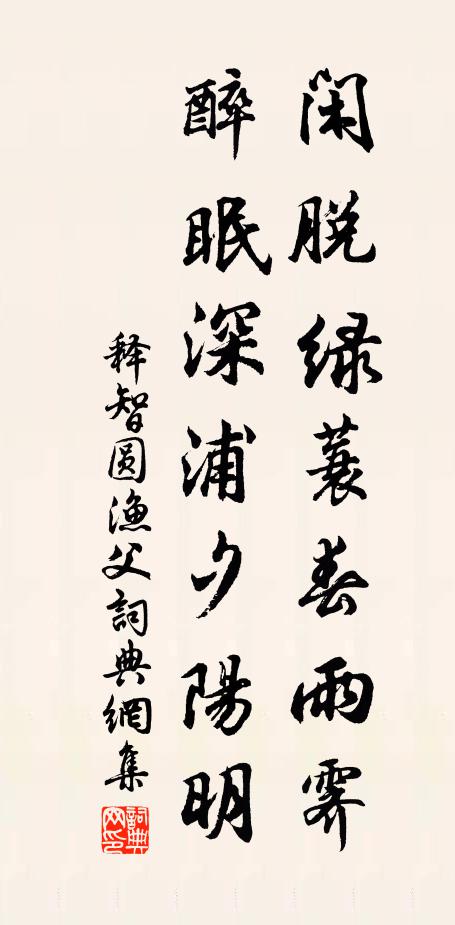 闲脱绿蓑春雨霁
醉眠深浦夕陽明
释智圆渔父詞典網集
詞典網印